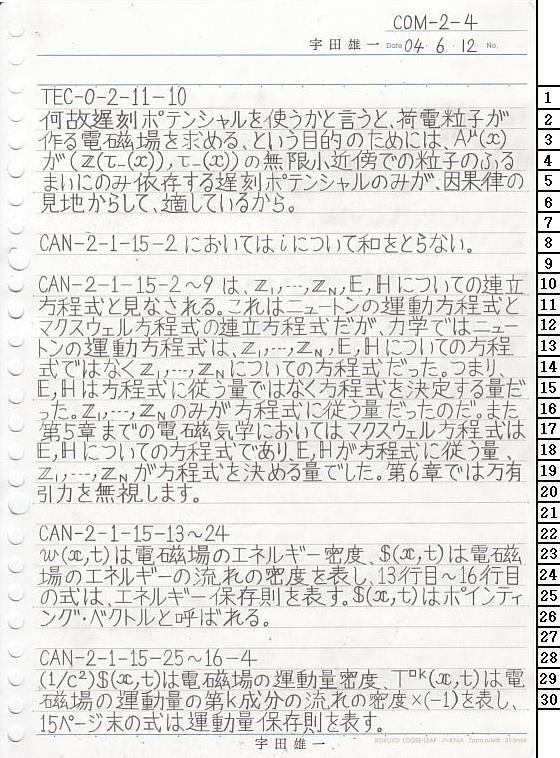 COM-2-4
宇田雄一 Date 04・6・12 No.
TEC-0-2-11-10
何故遅刻ポテンシャルを使うかと言うと、荷電粒子が
作る電磁場を求める、という目的のためには、Aμ(x)
が(z(τ-(x)),τ-(x))の無限小近傍での粒子のふる
まいにのみ依存する遅刻ポテンシャルのみが、因果律の
見地からして、適しているから。
CAN-2-1-15-2においてはiについて和をとらない。
CAN-2-1-15-2~9は、Z₁,…,Z_N,E,Hについての連立
方程式と見なされる。これはニュートンの運動方程式と
マクスウェル方程式の連立方程式だが、力学ではニュー
トンの運動方程式は、Z₁,…,Z_N,E,Hについての方程
式ではなくZ₁,…,Z_Nについての方程式だった。つまり、
E,Hは方程式に従う量ではなく方程式を決定する量だ
った。Z₁,…,Z_Nのみが方程式に従う量だったのだ。また
第5章までの電磁気学においてはマクスウェル方程式は
E,Hについての方程式であり、E,Hが方程式に従う量、
Z₁,…,Z_Nが方程式を決める量でした。第6章では万有
引力を無視します。
CAN-2-1-15-13~24
w(x,t)は電磁場のエネルギー密度、S(x,t)は電磁
場のエネルギーの流れの密度を表し、13行目~16行目
の式は、エネルギー保存則を表す。S(x,t)はポインティ
ング・ベクトルと呼ばれる。
CAN-2-1-15-25~16-4
(1/c²)S(x,t)は電磁場の運動量密度、T⁰ᵏ(x,t)は電
磁場の運動量の第k成分の流れの密度×(-1)を表し、
15ページ末の式は運動量保存則を表す。
宇田雄一
KOKUYO LOOSE-LEAF ノ-836A 7mm ruled 31 lines
1
2
3
4
5
6
7
8
9
10
11
12
13
14
15
16
17
18
19
20
21
22
23
24
25
26
27
28
29
30